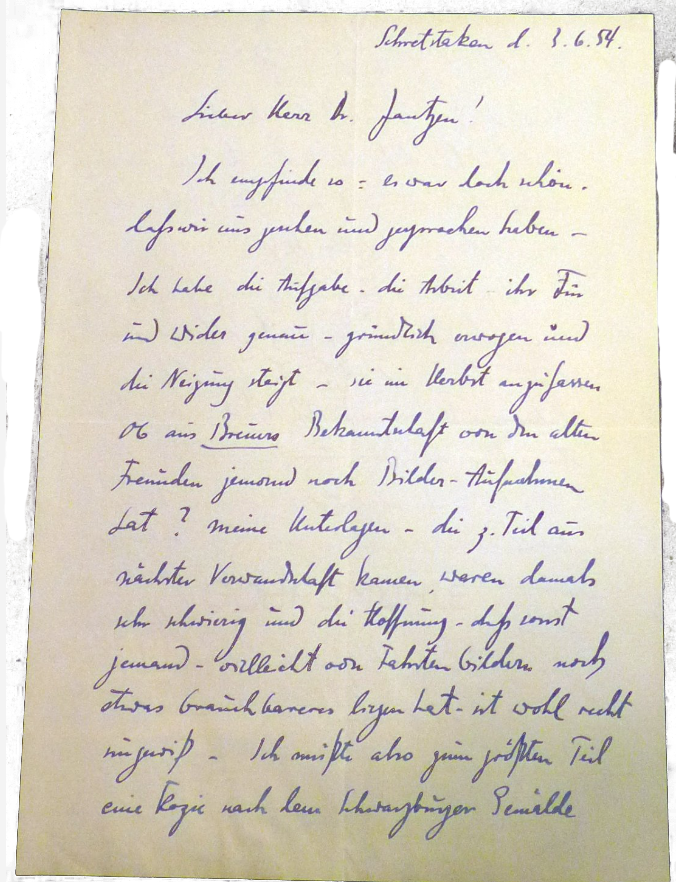 Schretstaken d. 3.6.54.
Lieber Herr Dr. Jantzen!
Ich empfinde so = es war doch schön.
daß wir uns gesehen und gesprochen haben –
Ich habe die Aufgabe – die Arbeit – ihr Für
und Wider genau – gründlich erwogen und
die Neigung steigt – sie im Herbst anzufassen
Ob aus Breuers Bekanntschaft von den alten
Freunden jemand noch Bilder-Aufnahmen
hat? meine Unterlagen – die z. Teil aus
nächster Verwandschaft kamen, waren damals
sehr schwierig und die Hoffnung – daß sonst
jemand – vielleicht von Fahrtenbildern noch
etwas brauchbareres liegen hat – ist wohl recht
ungewiß – Ich müßte also zum größten Teil
eine Kopie nach dem Schwarzburger Gemälde